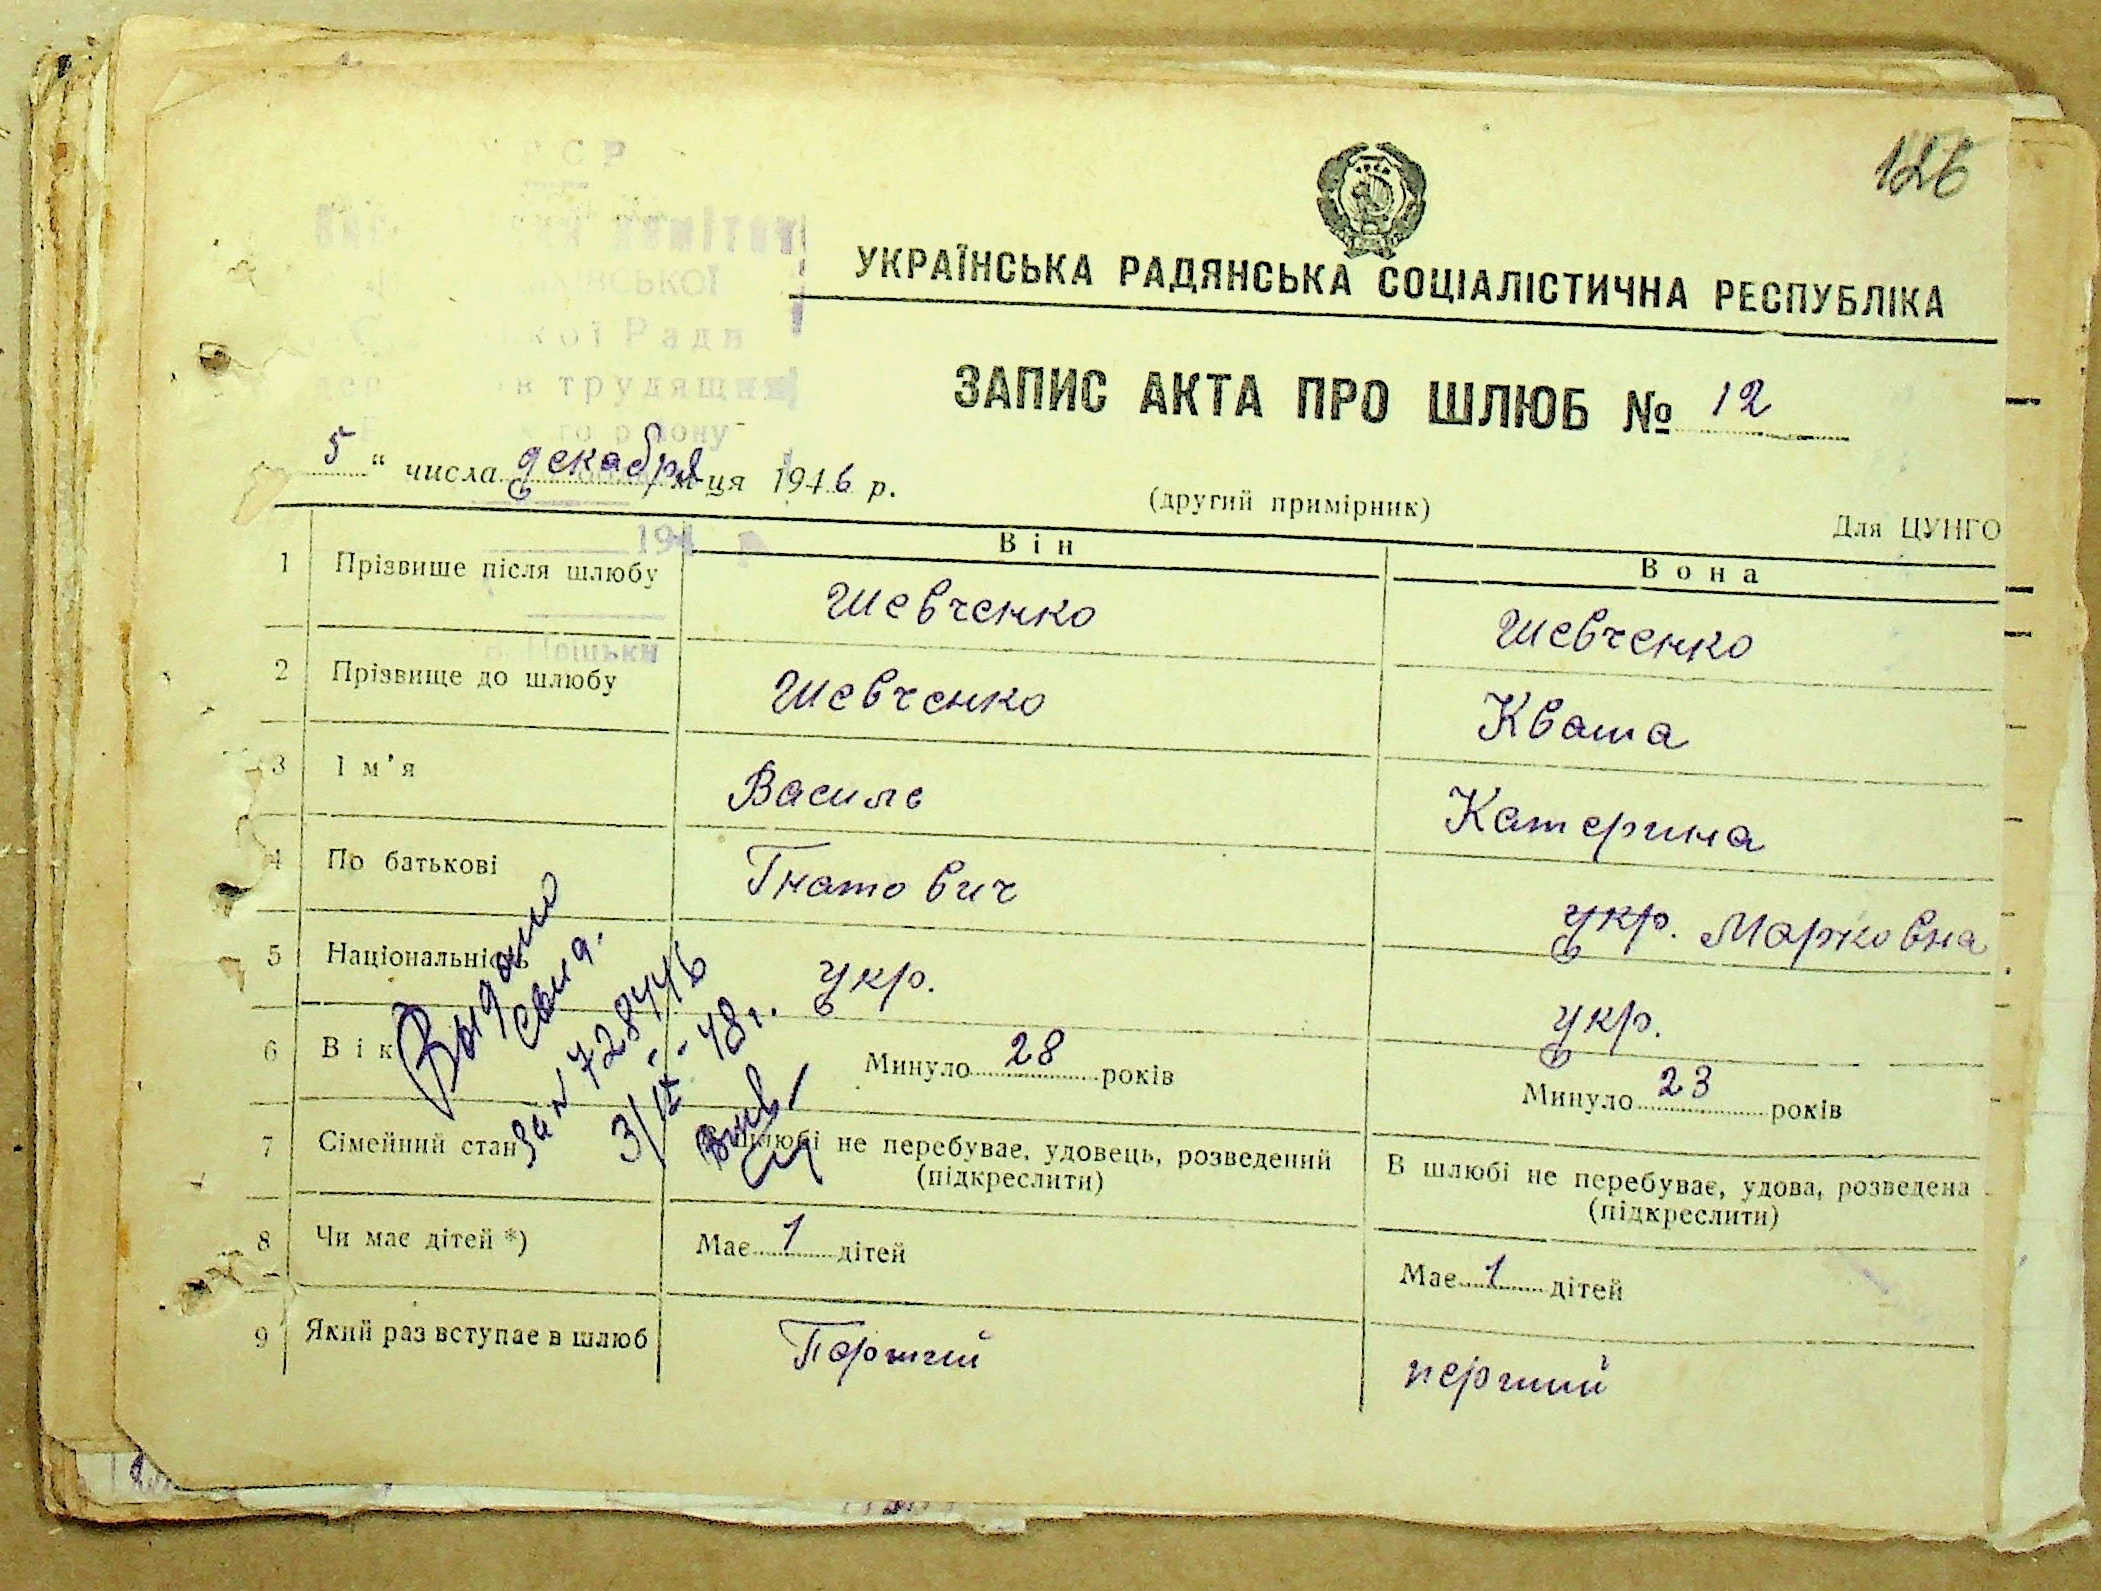 126
УКРАЇНСЬКА РАДЯНСЬКА СОЦІАЛІСТИЧНА РЕСПУБЛІКА
ЗАПИС АКТА ПРО ШЛЮБ № 12
5 " числа декабря м-ця 1946 р.
(другий примірник)
Для ЦУНГО
Він Вона
1 Прізвище після шлюбу Шевченко Шевченко
2 Прізвище до шлюбу Шевченко Кваша
3 Ім'я Василь Катерина
4 По батькові Гнатович укр. Марковна
5 Національність укр. укр.
6 Вік Минуло 28 років Минуло 23 років
7 Сімейний стан В шлюбі не перебуває, удовець, розведений (підкреслити) В шлюбі не перебуває, удова, розведена (підкреслити)
8 Чи має дітей *) Має 1 дітей Має 1 дітей
9 Який раз вступає в шлюб Перший перший
Выдано
за №
3/IX - 48 г.